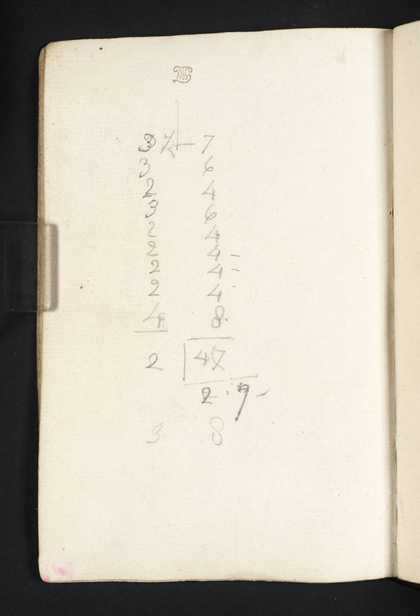 3 ½ 7
3 6
2 4
3 6
2 4
2 4
2 4
2 4
4 8
2 47
2 . 7
3 8